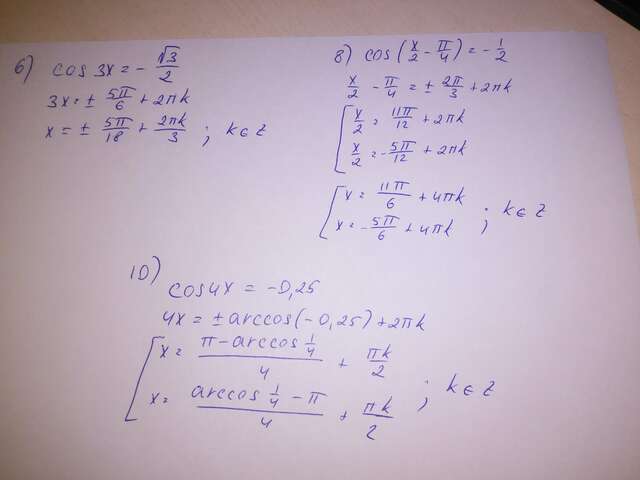 6) cos 3x = - √3/2
3x = ± 5π/6 + 2πk
x = ± 5π/18 + 2πk/3 ; k ∈ z
8) cos (x/2 - π/4) = - 1/2
x/2 - π/4 = ± 2π/3 + 2πk
[ x/2 = 11π/12 + 2πk
x/2 = - 5π/12 + 2πk
[ x = 11π/6 + 4πk
x = - 5π/6 + 4πk ; k ∈ z
10)
cos 4x = -0,25
4x = ± arccos(-0,25) + 2πk
[ x = (π - arccos 1/4)/4 + πk/2
x = (arccos 1/4 - π)/4 + πk/2 ; k ∈ z